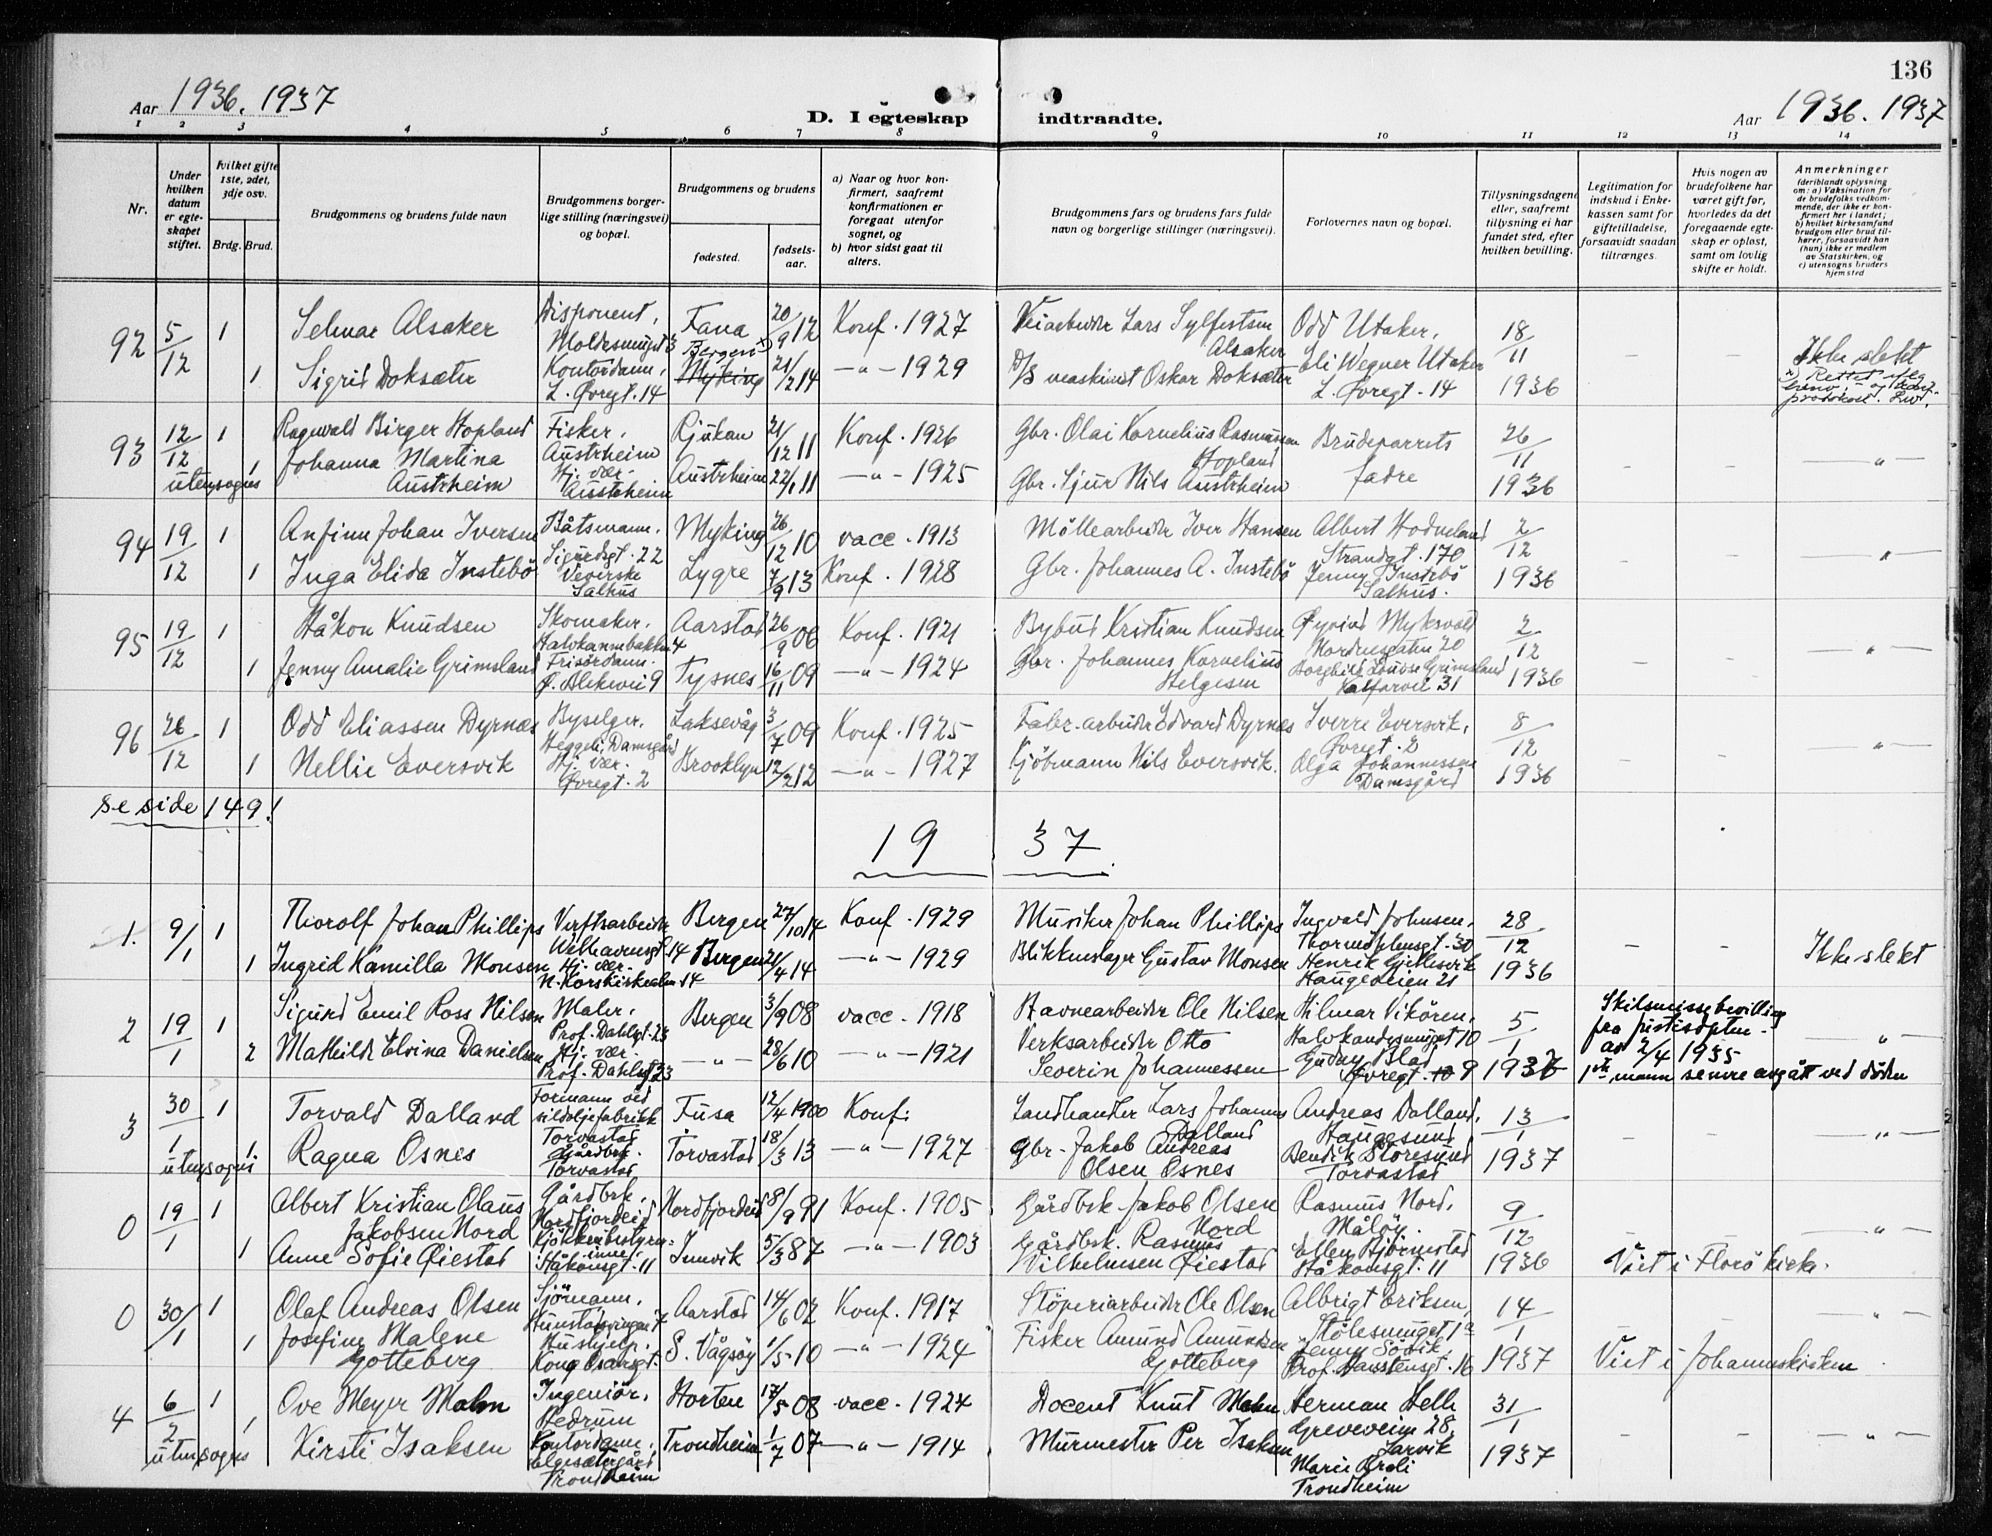 136
Aar 1936. 1937
D. I egteskap indtraadte.
Aar 1936. 1937
1 2 3 4 5 6 7 8 9 10 11 12 13 14
Nr.
Under hvilken datum er egteskapet stiftet.
hvilket gifte 1ste, 2det, 3dje osv.
Brdg. Brud.
Brudgommens og brudens fulde navn
Brudgommens borgerlige stilling (næringsvei) og bopæl.
Brudgommens og brudens
fødested.
fødselsaar.
a) Naar og hvor konfirmert, saafremt konfirmationen er foregaat utenfor sognet, og
b) hvor sidst gaat til alters.
Brudgommens fars og brudens fars fulde navn og borgerlige stillinger (næringsvei).
Forlovernes navn og bopæl.
Tillysningsdagene eller, saafremt tillysning ei har fundet sted, efter hvilken bevilling.
Legitimation for indskud i Enkekassen samt for giftetilladelse, forsaavidt saadan tiltrænges.
Hvis nogen av brudefolkene har været gift før, hvorledes da det foregaaende egteskap er opløst, samt om lovlig skifte er holdt.
Anmerkninger
(deriblandt oplysning om: a) Vaksination for de brudefolks vedkommende, der ikke er konfirmert her i landet; b) hvilket kirkesamfund brudgom eller brud tilhører, forsaavidt han (hun) ikke er medlem av Statskirken, og c) utensogns bruders hjemsted
92 5/12 1 Selmar Alsaker Disponent, Moldesmuget 3 Fana 20/9 12 Konf. 1927 Veiarbeider Lars Sylfestsen Alsaker Odd Utaker, 18/11 1936 - - Ikke slekt
1 Sigrid Doksæter Kontordame, L. Øvregt. 14 Bergen Myking 21/2 14 -"- 1929 D/S maskinist Oskar Doksæter Eli Wegner Utaker L. Øvregt. 14
93 12/12 utensogns 1 Ragnvald Birger Hopland Fisker, Austrheim Rjukan 21/12 11 Konf. 1926 Gbr. Olai Kornelius Rasmussen Hopland Brudeparrets fedre 26/11 1936 - - -"-
1 Johanna Martina Austrheim Hj. vær. Austrheim Austrheim 22/1 11 -"- 1925 Gbr. Sjur Nils Austrheim
94 19/12 1 Anfinn Johan Iversen Båtsmann, Sigurdsgt. 22 Myking 26/12 10 vacc. 1913 Möllearbeider Iver Hansen Albert Hodneland Strandgt. 170 2/12 1936 - - "
1 Inga Elida Instebö Veverske Salhus Lygre 7/9 13 Konf. 1928 Gbr. Johannes A. Instebö Jenny Instebö Salhus.
95 19/12 1 Håkon Knudsen Skomaker, Halvkannebakken 4 Aarstad 26/9 06 Konf. 1921 Bybud Kristian Knudsen Øyvind Myksvold Nordnesgaten 20 2/12 1936 - - -"-
1 Jenny Amalie Grimsland Frisördame. Ø. Blekevei 9 Tysnes 16/11 09 -"- 1924 Gbr. Johannes Kornelius Helgesen Borghild Louise Grimsland Kalfarvei 31
96 26/12 1 Odd Eliassen Dyrnes Byselger, Heggeli, Damsgård Laksevåg 3/7 09 Konf. 1925 Fabr. arbeider Edvard Dyrnes Sverre Eversvik, Øvregt. 2 8/12 1936 - - -"-
1 Nellie Eversvik Hj. vær. Øvregt. 2 Brooklyn 12/2 12 -"- 1927 Kjöbmann Nils Eversvik. Olga Johannessen Damsgård
se side 149!
1937.
1. 9/1 1 Thorolf Johan Phillips Verftsarbeider Welhavensgt. 14 Bergen 27/10 14 Konf. 1929 Musiker Johan Phillips Ingvald Johnsen, Thormöhlensgt. 30 28/12 1936 - - Ikke slekt
1 Ingrid Kamilla Monsen Hj. vær. N. Korskirkealm. 14 Bergen 21/4 14 -"- 1929 Blikkenslager Gustav Monsen Henrik Gjellesvik Haugeveien 21
2 19/1 1 Sigurd Emil Ross Nilsen Maler, Prof. Dahlsgt. 23 Bergen 3/9 08 vacc. 1918 Havnearbeider Ole Nilsen Hilmar Vikören, Halvkandesmuget 10 5/1 1937 Skilsmissebevilling fra justisdpten. av 2/4 1935 "
2 Mathilde Elvina Danielsen Hj. vær. Prof. Dahlsgt 23 -"- 28/6 10 -"- 1921 Verksarbeider Otto Severin Johannessen Gudny Blad Øvregt. 10 9 1ste mann senere avgått ved döden
3 30/1 utensogns 1 Torvald Dalland Formann ved sildoljefabrikk Torvastad Fusa 12/4 1900 Konf. Landhandler Lars Johannes Dalland Andreas Dalland, Haugesund 13/1 1937 - - -"-
1 Ragna Osnes Gårdbr. Torvastad Torvastad 18/3 13 -"- 1927 Gbr. Jakob Andreas Olsen Osnes Bendik Storesund Torvastad
0 19/1 1 Albert Kristian Olaus Jakobsen Nord Gårdbrk. Nordfjordeid Nordfjordeid 8/9 91 Konf. 1905 Gårdbrk. Jakob Olsen Nord Rasmus Nord, Måløy. 9/12 1936 - - -"-
1 Anne Sofie Øiestad Kjökkenbestyrerinne, Håkonsgt. 11 Innvik 5/3 87 -"- 1903 Gårdbrk. Rasmus Vilhelmsen Øiestad Ellen Bjørnstad Håkonsgt. 11 Viet i Florö kirke.
0 30/1 1 Olaf Andreas Olsen Sjömann, Aarstad 14/6 02 Konf. 1917 Stöperiarbeider Ole Olsen Albrigt Eriksen, Stölesmuget 1a 14/1 1937 - - "
1 Josefine Malene Gotteberg Hushjelp, Kong Oscarsgt. S. Vågsøy 1/5 10 -"- 1924 Fisker Amund Amundsen Gotteberg Jenny Sörvik Prof. Hanstensgt. 16 Viet i Johanneskirken.
4 6/2 utensogns 1 Ove Meyer Malm Ingeniör, Horten 17/5 08 vacc. 1924 Docent Knut Malm Herman Helle Greveveien 28, Larvik 31/1 1937 - - - " -
1 Kirsti Isaksen Kontordame, Trondheim Trondheim 1/7 07 -"- 1914 Murmester Per Isaksen Marie Broli Trondheim